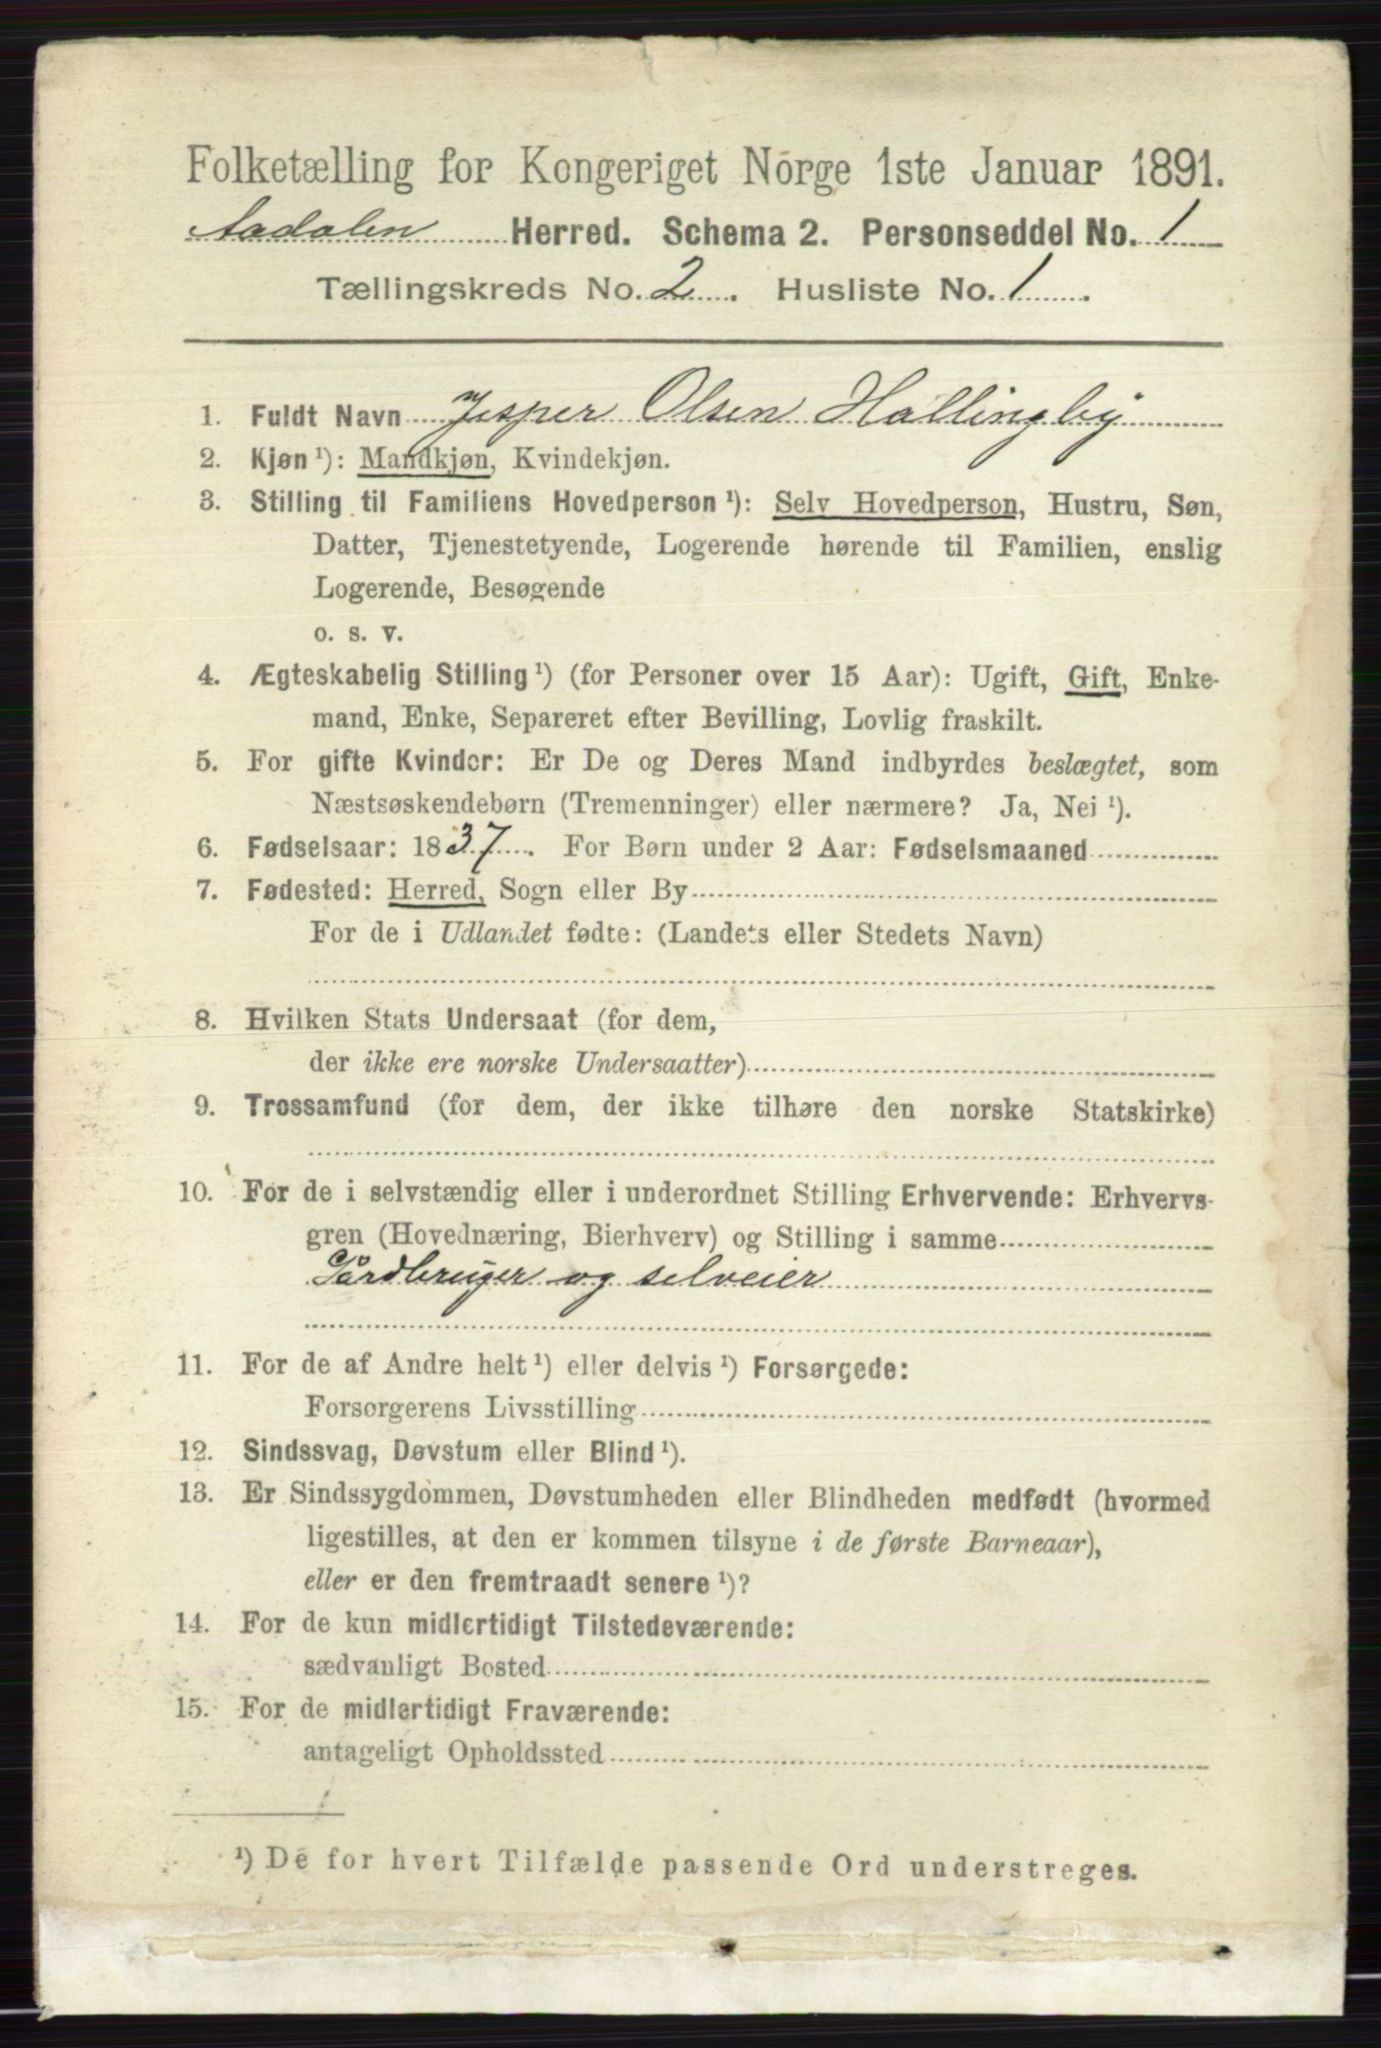 Folketælling for Kongeriget Norge 1ste Januar 1891.
Aadalen Herred. Schema 2. Personseddel No. 1
Tællingskreds No. 2. Husliste No. 1.
1. Fuldt Navn Jesper Olsen Hallingby
2. Kjøn ¹): Mandkjøn, Kvindekjøn.
3. Stilling til Familiens Hovedperson ¹): Selv Hovedperson, Hustru, Søn,
Datter, Tjenestetyende, Logerende hørende til Familien, enslig
Logerende, Besøgende
o. s. v.
4. Ægteskabelig Stilling ¹) (for Personer over 15 Aar): Ugift, Gift, Enke-
mand, Enke, Separeret efter Bevilling, Lovlig fraskilt.
5. For gifte Kvinder: Er De og Deres Mand indbyrdes beslægtet, som
Næstsøskendebørn (Tremenninger) eller nærmere? Ja, Nei ¹).
6. Fødselsaar: 1837. For Børn under 2 Aar: Fødselsmaaned
7. Fødested: Herred, Sogn eller By
For de i Udlandet fødte: (Landets eller Stedets Navn)
8. Hvilken Stats Undersaat (for dem,
der ikke ere norske Undersaatter)
9. Trossamfund (for dem, der ikke tilhøre den norske Statskirke)
10. For de i selvstændig eller i underordnet Stilling Erhvervende: Erhvervs-
gren (Hovednæring, Bierhverv) og Stilling i samme
Gårdbruger og selveier
11. For de af Andre helt ¹) eller delvis ¹) Forsørgede:
Forsørgerens Livsstilling
12. Sindssvag, Døvstum eller Blind ¹).
13. Er Sindssygdommen, Døvstumheden eller Blindheden medfødt (hvormed
ligestilles, at den er kommen tilsyne i de første Barneaar),
eller er den fremtraadt senere ¹)?
14. For de kun midlertidigt Tilstedeværende:
sædvanligt Bosted
15. For de midlertidigt Fraværende:
antageligt Opholdssted
¹) De for hvert Tilfælde passende Ord understreges.